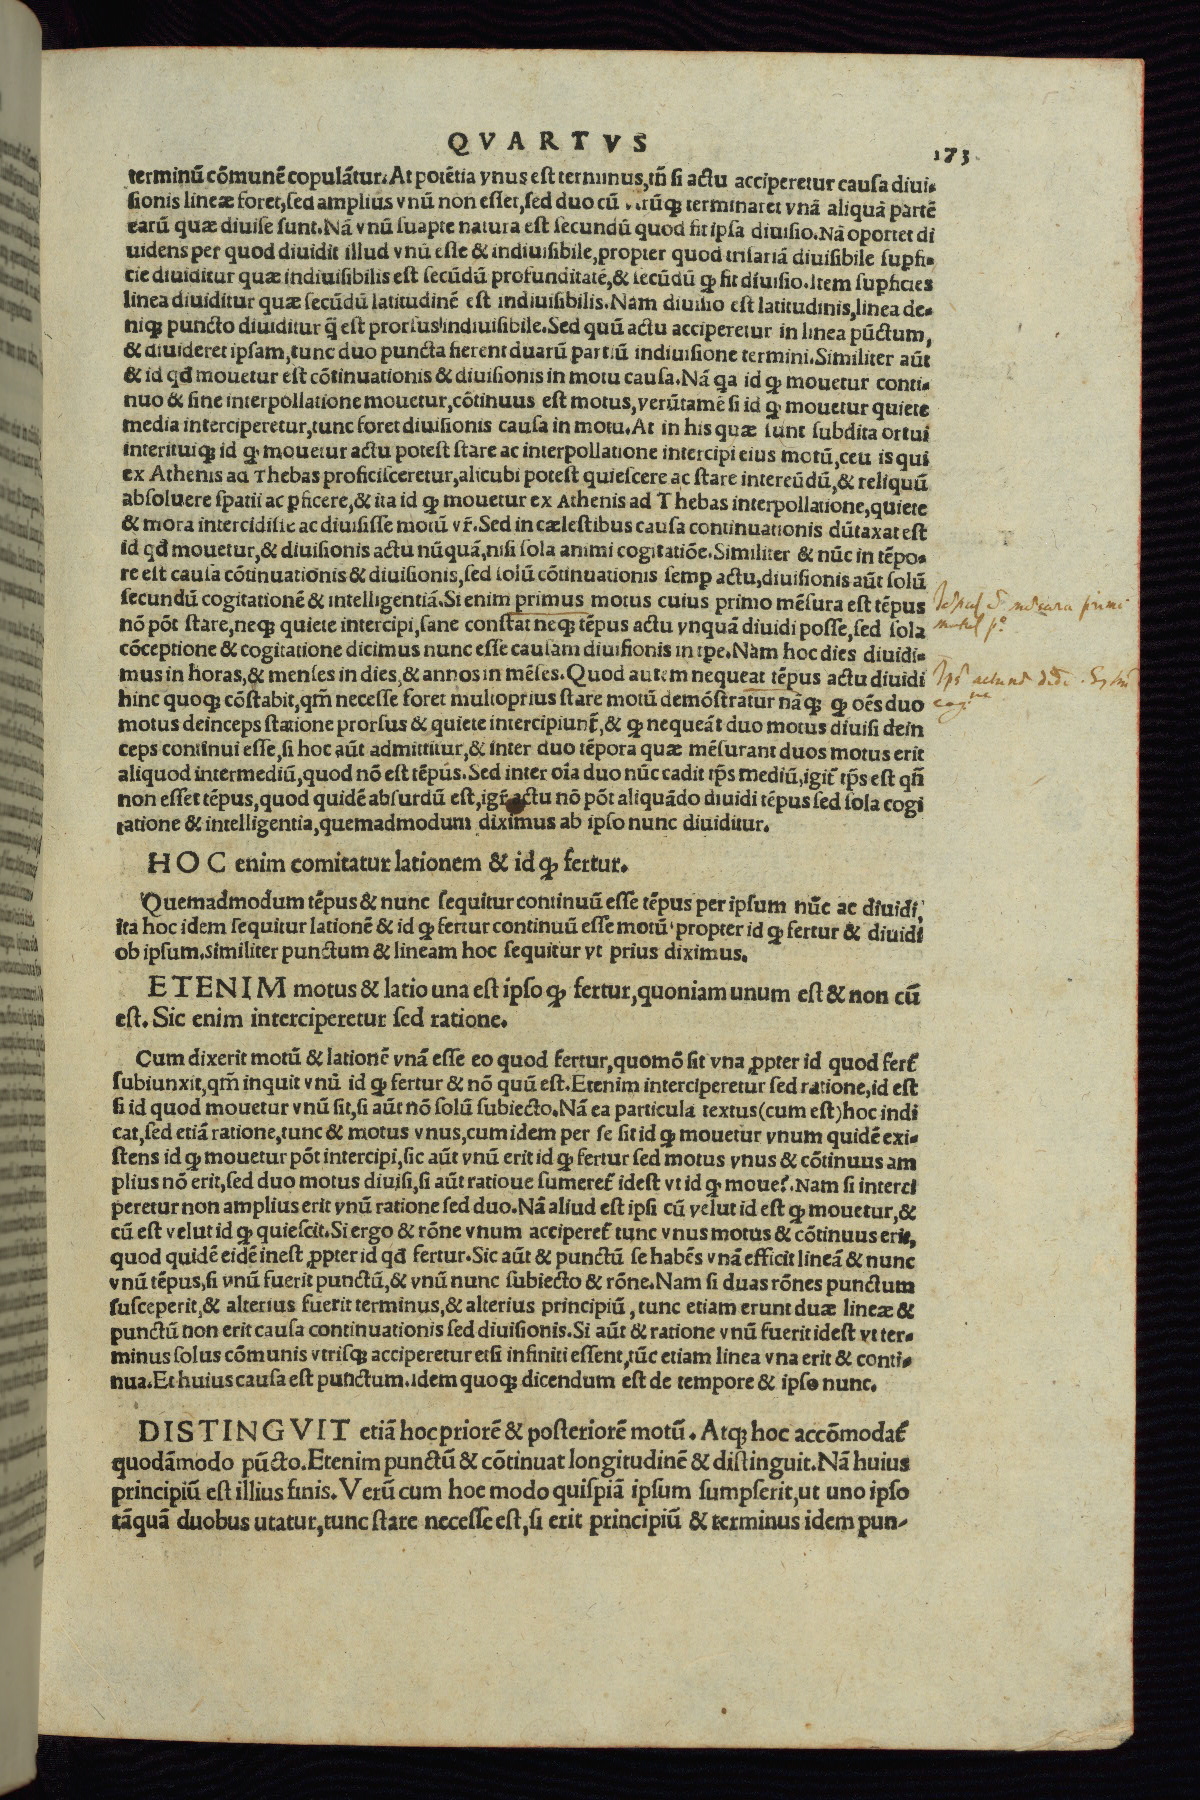 QVARTVS
173
terminũ cõmunẽ copulãtur. At potẽtia vnus est terminus, tñ si actu acciperetur causa diui-
sionis lineæ foret, sed amplius vnũ non esset, sed duo cũ vtrũq; terminaret vnã aliquã partẽ
earũ quæ diuise sunt. Nã vnũ suapte natura est secundũ quod fit ipsa diuisio. Nã oportet di
uidens per quod diuidit illud vnũ esse & indiuisibile, propter quod trifariã diuisibile supfi-
cie diuiditur quæ indiuisibilis est secũdũ profunditatẽ, & secũdũ qꝫ fit diuisio. Item supficies
linea diuiditur quæ secũdũ latitudinẽ est indiuisibilis. Nam diuisio est latitudinis, linea de-
niqꝫ puncto diuiditur q̃ est prorsus indiuisibile. Sed quũ actu acciperetur in linea pũctum,
& diuideret ipsam, tunc duo puncta fierent duarũ partiũ indiuisione termini. Similiter aũt
& id qđ mouetur est cõtinuationis & diuisionis in motu causa. Nã qa id qꝫ mouetur conti-
nuo & sine interpollatione mouetur, cõtinuus est motus, verũtamẽ si id qꝫ mouetur quiete
media interciperetur, tunc foret diuisionis causa in motu. At in his quæ sunt subdita ortui
interituiqꝫ id qꝫ mouetur actu potest stare ac interpollatione intercipi eius motũ, ceu is qui
ex Athenis ad Thebas proficisceretur, alicubi potest quiescere ac stare intereũdũ, & reliquũ
absoluere spatii ac pficere, & ita id qꝫ mouetur ex Athenis ad Thebas interpollatione, quiete
& mora intercidisse ac diuisisse motũ vr̃. Sed in cælestibus causa continuationis dũtaxat est
id qđ mouetur, & diuisionis actu nũquã, nisi sola animi cogitatiõe. Similiter & nũc in tẽpo-
re est causa cõtinuationis & diuisionis, sed solũ cõtinuationis semp actu, diuisionis aũt solũ
secundũ cogitationẽ & intelligentiã. Si enim primus motus cuius primo mẽsura est tẽpus
nõ põt stare, neqꝫ quiete intercipi, sane constat neqꝫ tẽpus actu vnquã diuidi posse, sed sola
cõceptione & cogitatione dicimus nunc esse causam diuisionis in tpe. Nam hoc dies diuidi-
mus in horas, & menses in dies, & annos in mẽses. Quod autem nequeat tẽpus actu diuidi
hinc quoqꝫ cõstabit, qm̃ necesse foret multoprius stare motũ demõstratur nãqꝫ qꝫ oẽs duo
motus deinceps statione prorsus & quiete intercipiunt̃, & qꝫ nequeãt duo motus diuisi dein
ceps continui esse, si hoc aũt admittitur, & inter duo tẽpora quæ mẽsurant duos motus erit
aliquod intermediũ, quod nõ est tẽpus. Sed inter oĩa duo nũc cadit tp̃s mediũ, igit̃ tp̃s est qñ
non esset tẽpus, quod quidẽ absurdũ est, igr̃ actu nõ põt aliquãdo diuidi tẽpus sed sola cogi
tatione & intelligentia, quemadmodum diximus ab ipso nunc diuiditur.
HOC enim comitatur lationem & id qꝫ fertur.
Quemadmodum tẽpus & nunc sequitur continuũ esse tẽpus per ipsum nũc ac diuidi,
ita hoc idem sequitur lationẽ & id qꝫ fertur continuũ esse motũ propter id qꝫ fertur & diuidi
ob ipsum. Similiter punctum & lineam hoc sequitur vt prius diximus.
ETENIM motus & latio una est ipso qꝫ fertur, quoniam unum est & non cũ
est. Sic enim interciperetur sed ratione.
Cum dixerit motũ & lationẽ vnã esse eo quod fertur, quomõ sit vna ꝓpter id quod fert̃
subiunxit, qm̃ inquit vnũ id qꝫ fertur & nõ quũ est. Etenim interciperetur sed ratione, id est
si id quod mouetur vnũ sit, si aũt nõ solũ subiecto. Nã ea particula textus (cum est) hoc indi
cat, sed etiã ratione, tunc & motus vnus, cum idem per se sit id qꝫ mouetur vnum quidẽ exi-
stens id qꝫ mouetur põt intercipi, sic aũt vnũ erit id qꝫ fertur sed motus vnus & cõtinuus am
plius nõ erit, sed duo motus diuisi, si aũt ratioue sumeret̃ idest vt id qꝫ mouet̃. Nam si interci
peretur non amplius erit vnũ ratione sed duo. Nã aliud est ipsi cũ velut id est qꝫ mouetur, &
cũ est velut id qꝫ quiescit. Si ergo & rõne vnum acciperet̃ tunc vnus motus & cõtinuus erit,
quod quidẽ eidẽ inest ꝓpter id qđ fertur. Sic aũt & punctũ se habẽs vnã efficit lineã & nunc
vnũ tẽpus, si vnũ fuerit punctũ, & vnũ nunc subiecto & rõne. Nam si duas rõnes punctum
susceperit, & alterius fuerit terminus, & alterius principiũ, tunc etiam erunt duæ lineæ &
punctũ non erit causa continuationis sed diuisionis. Si aũt & ratione vnũ fuerit idest vt ter-
minus solus cõmunis vtrisqꝫ acciperetur etsi infiniti essent, tũc etiam linea vna erit & conti-
nua. Et huius causa est punctum. Idem quoqꝫ dicendum est de tempore & ipso nunc.
DISTINGVIT etiã hoc priorẽ & posteriorẽ motũ. Atqꝫ hoc accõmodat̃
quodãmodo pũcto. Etenim punctũ & cõtinuat longitudinẽ & distinguit. Nã huius
principiũ est illius finis. Verũ cum hoc modo quispiã ipsum sumpserit, ut uno ipso
tãquã duobus utatur, tunc stare necesse est, si erit principiũ & terminus idem pun-